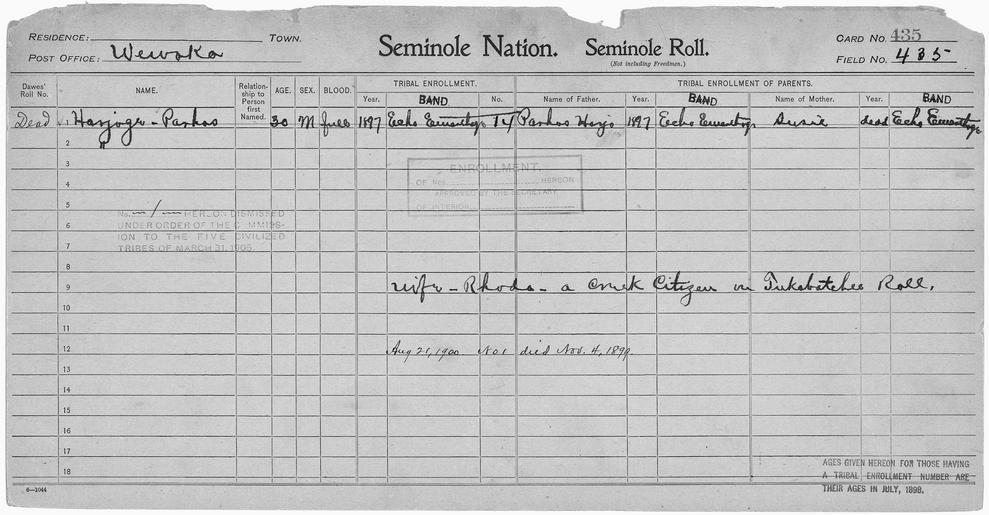 RESIDENCE: TOWN.
POST OFFICE: Wewoka
Seminole Nation. Seminole Roll.
(Not including Freedmen.)
CARD NO. 435
FIELD NO. 435
Dawes' Roll No. NAME. Relationship to Person first Named. AGE. SEX. BLOOD. TRIBAL ENROLLMENT. TRIBAL ENROLLMENT OF PARENTS.
Year. BAND No. Name of Father. Year. BAND Name of Mother. Year. BAND
Dead 1 Harjoge - Parhos 30 M full 1897 Echo 14 Parhos Harjo 1897 Echo Susie dead Echo
2
3
ENROLLMENT
OF Nos. HEREON
4
APPROVED BY THE SECRETARY
OF INTERIOR
5
No. 1 HEREON DISMISSED
6
UNDER ORDER OF THE COMMISSION TO THE FIVE CIVILIZED
7
TRIBES OF MARCH 31, 1905.
8
9 wife - Rhoda - a Creek Citizen on Tukabatchee Roll.
10
11
12 Aug 21, 1900. No 1 died Nov. 4, 1899.
13
14
15
16
17
18
AGES GIVEN HEREON FOR THOSE HAVING
A TRIBAL ENROLLMENT NUMBER ARE
THEIR AGES IN JULY, 1898.
6-1044